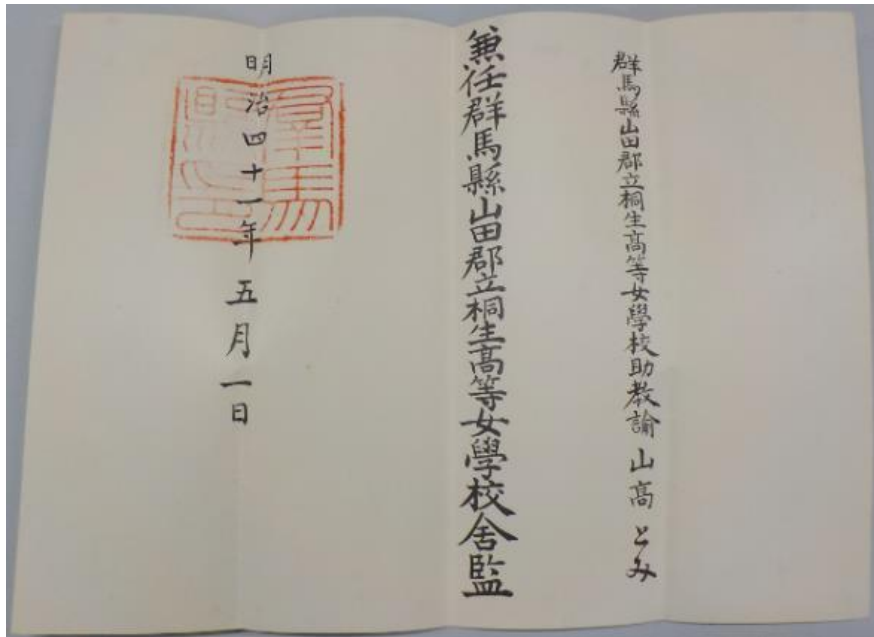 群馬縣山田郡立桐生高等女學校助教諭 山高 とみ
兼任群馬縣山田郡立桐生高等女學校舎監
明治四十一年五月一日
群馬縣之印